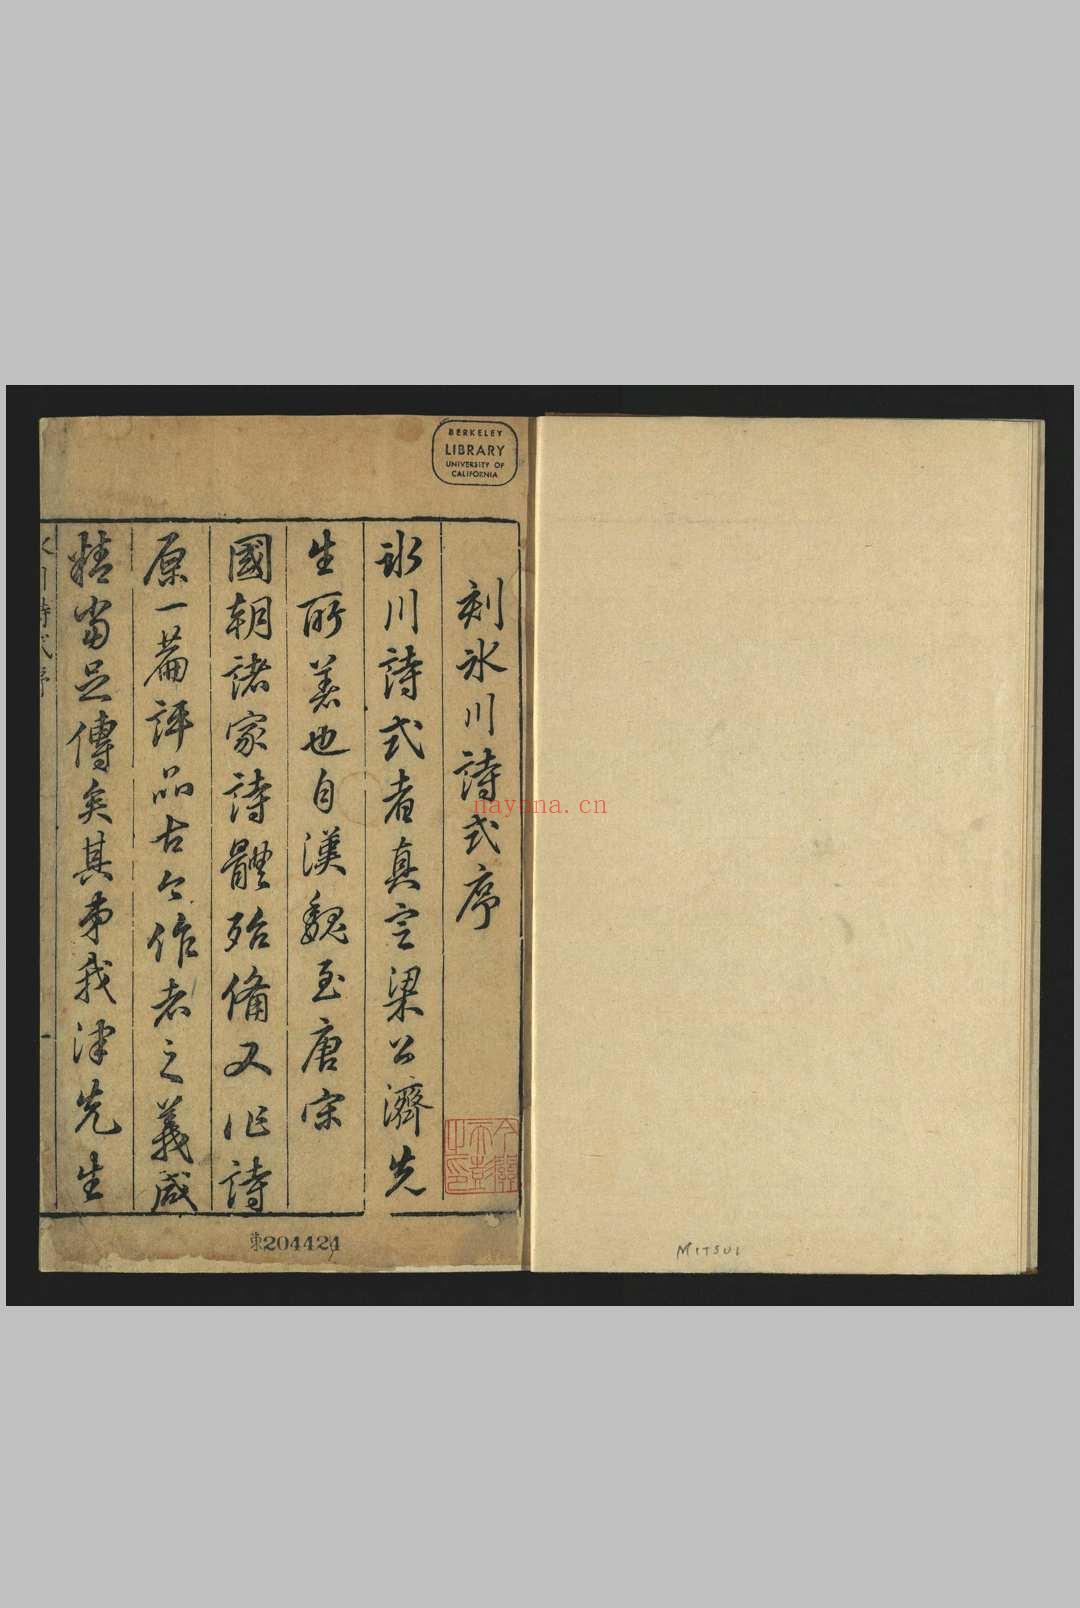 刻冰川詩式序
冰川詩式者真定梁公濟先
生所著也自漢魏至唐宋
國朝諸家詩體殆備又作詩
原一篇評品古今作者之義咸
精當足傳矣其弟我津先生
冰川詩式序
一
BERKELEY
LIBRARY
UNIVERSITY OF
CALIFORNIA
nayona.cn
東204424
MITSUI